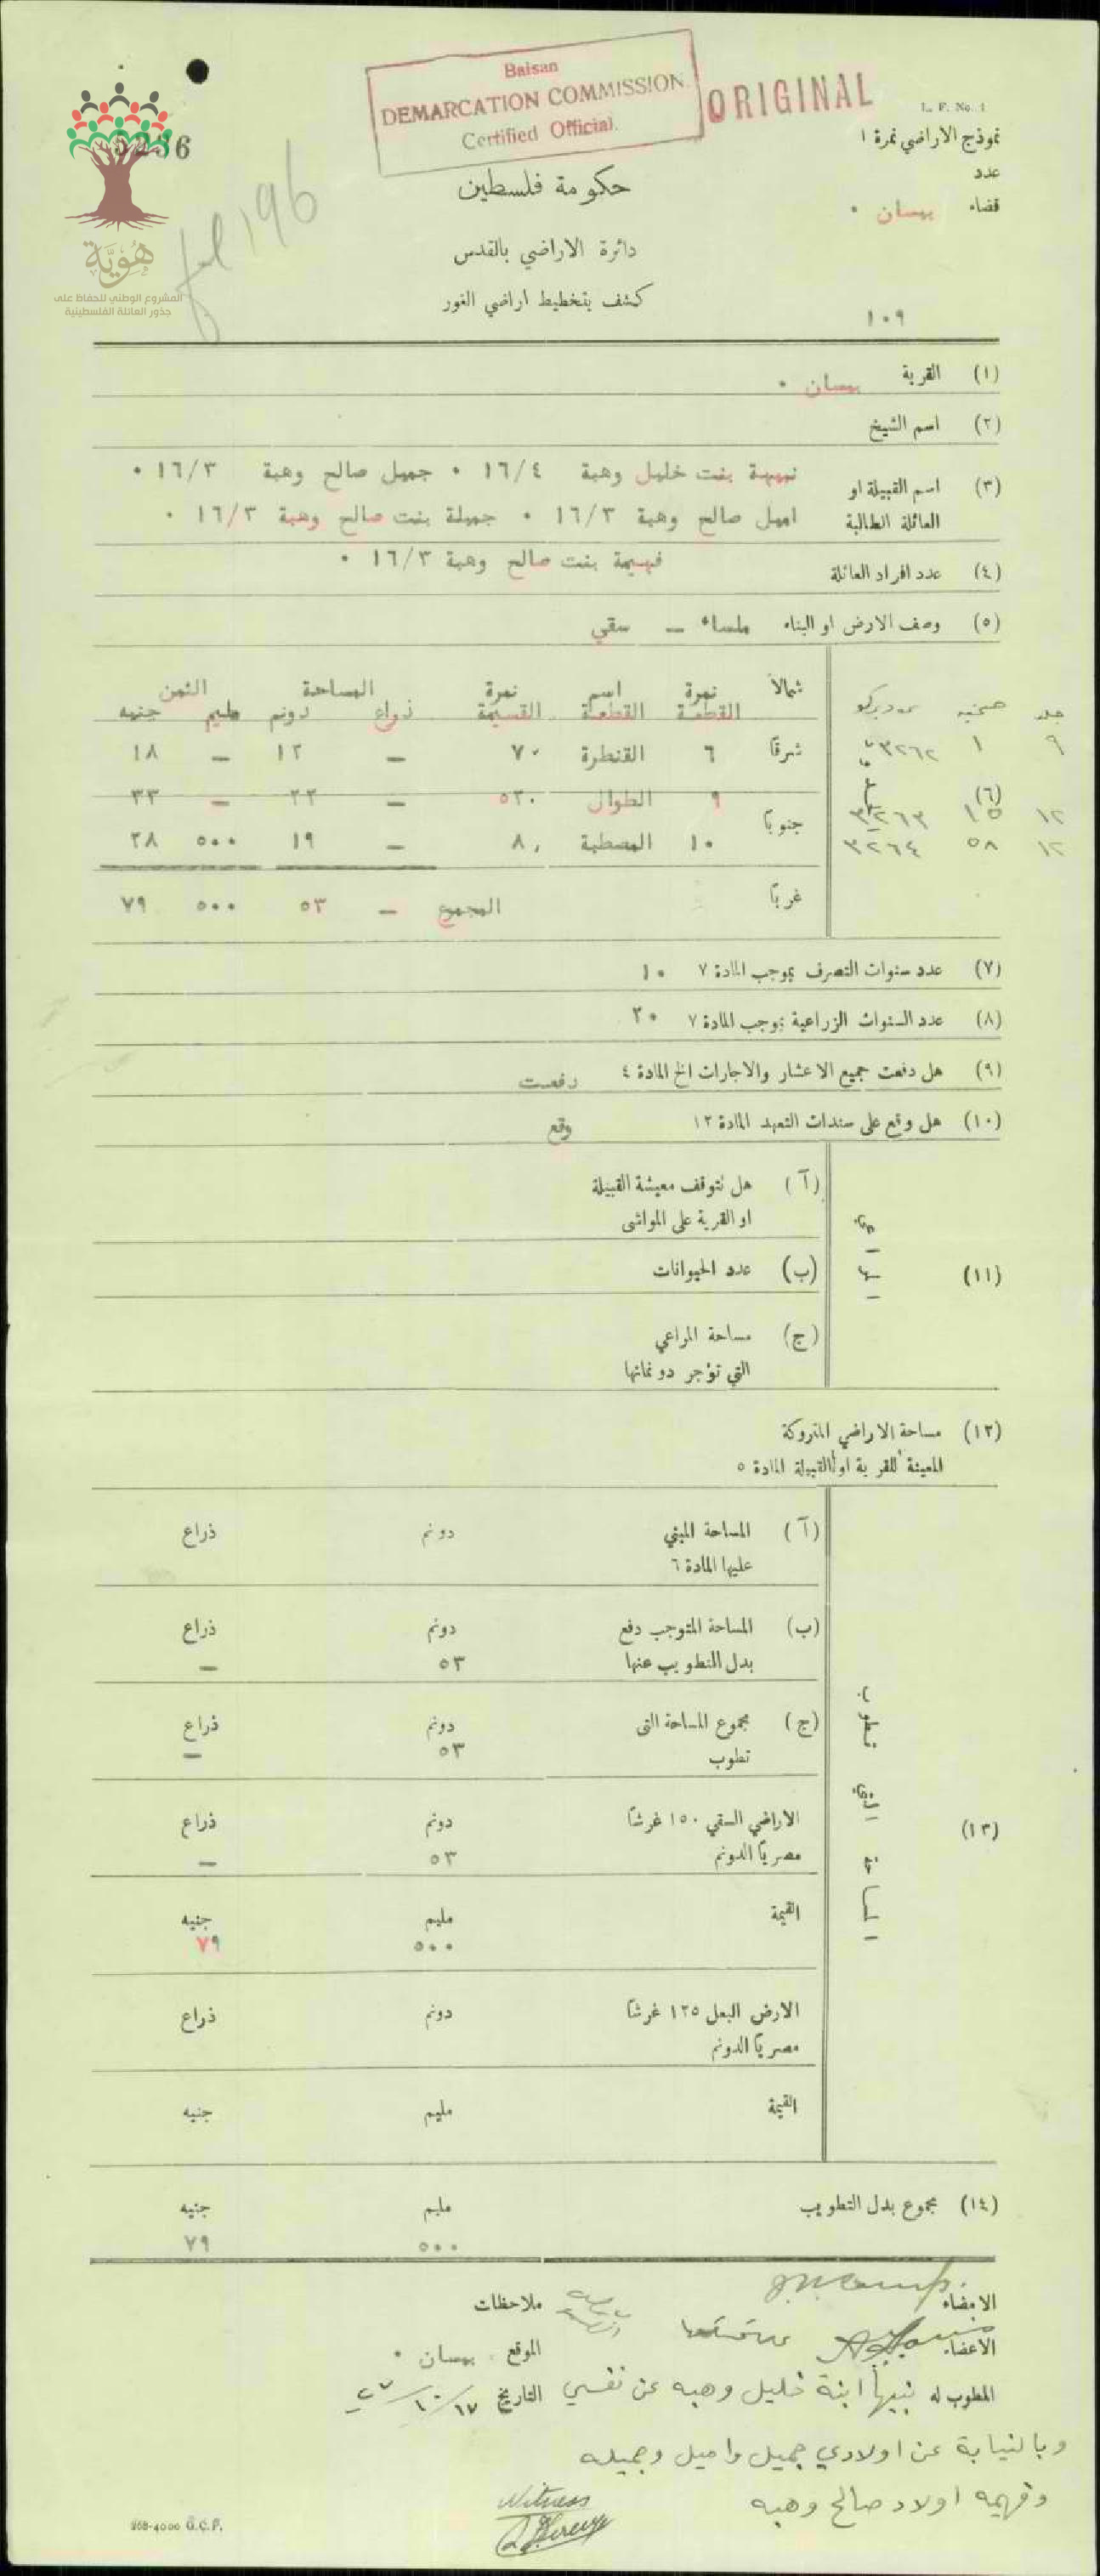 Baisan
DEMARCATION COMMISSION
Certified Official.
ORIGINAL
L. F. No. 1
نموذج الاراضي نمرة ١
عدد
قضاء بيسان
5236
196
هُوِيَّة
المشروع الوطني للحفاظ على
جذور العائلة الفلسطينية
حكومة فلسطين
دائرة الاراضي بالقدس
كشف بتخطيط اراضي الغور
١٠٩
(١) القرية بيسان
(٢) اسم الشيخ
(٣) اسم القبيلة او نبيهة بنت خليل وهبة ١٦/٤ • جميل صالح وهبة ١٦/٣ •
العائلة الطالبة اميل صالح وهبة ١٦/٣ • جميلة بنت صالح وهبة ١٦/٣ •
فهيمة بنت صالح وهبة ١٦/٣ •
(٤) عدد افراد العائلة
(٥) وصف الارض او البناء ملساء — سقي
جلد صحيفة شمالاً نمرة اسم نمرة المساحة الثمن
القطعة القطعة القسيمة ذراع دونم مليم جنيه
٩ ١ ٣٢٦٢ شرقاً ٦ القنطرة ٧٠ — ١٢ — ١٨
(٦)
١٢ ١٥ ٣٢٦٣ جنوباً ٩ الطوال ٥٢٠ — ٢٢ — ٣٣
١٢ ٥٨ ٣٢٦٤ ١٠ المصطبة ٨٠ — ١٩ ٥٠٠ ٢٨
غرباً المجموع — ٥٣ ٥٠٠ ٧٩
(٧) عدد سنوات التصرف بموجب المادة ٧ ١٠
(٨) عدد السنوات الزراعية بموجب المادة ٧ ٢٠
(٩) هل دفعت جميع الاعشار والاجارات الخ المادة ٤ دفعت
(١٠) هل وقع على سندات التعهد المادة ١٢ وقع
(١١) المراعي
(آ) هل تتوقف معيشة القبيلة
او القرية على المواشى
(ب) عدد الحيوانات
(ج) مساحة المراعي
التي تؤجر دونماتها
(١٢) مساحة الاراضي المتروكة
المعينة للقرية او القبيلة المادة ٥
(١٣) المساحة التي تطوب
(آ) المساحة المبني دونم ذراع
عليها المادة ٦
(ب) المساحة المتوجب دفع دونم ذراع
بدل التطويب عنها ٥٣ —
(ج) مجموع المساحة التى دونم ذراع
تطوب ٥٣ —
الاراضي السقي ١٥٠ غرشاً دونم ذراع
مصرياً الدونم ٥٣ —
القيمة مليم جنيه
٥٠٠ ٧٩
الارض البعل ١٢٥ غرشاً دونم ذراع
مصرياً الدونم
القيمة مليم جنيه
(١٤) مجموع بدل التطويب مليم جنيه
٥٠٠ ٧٩
الامضاء ملاحظات
الاعضاء الموقع بيسان •
المطوب له نبيها ابنة خليل وهبه عن نفسي التاريخ ١٧/١٠/٢٧
وبالنيابة عن اولادي جميل واميل وجميله
وفهيمه اولاد صالح وهبه
Witness
268-4000 G.C.P.